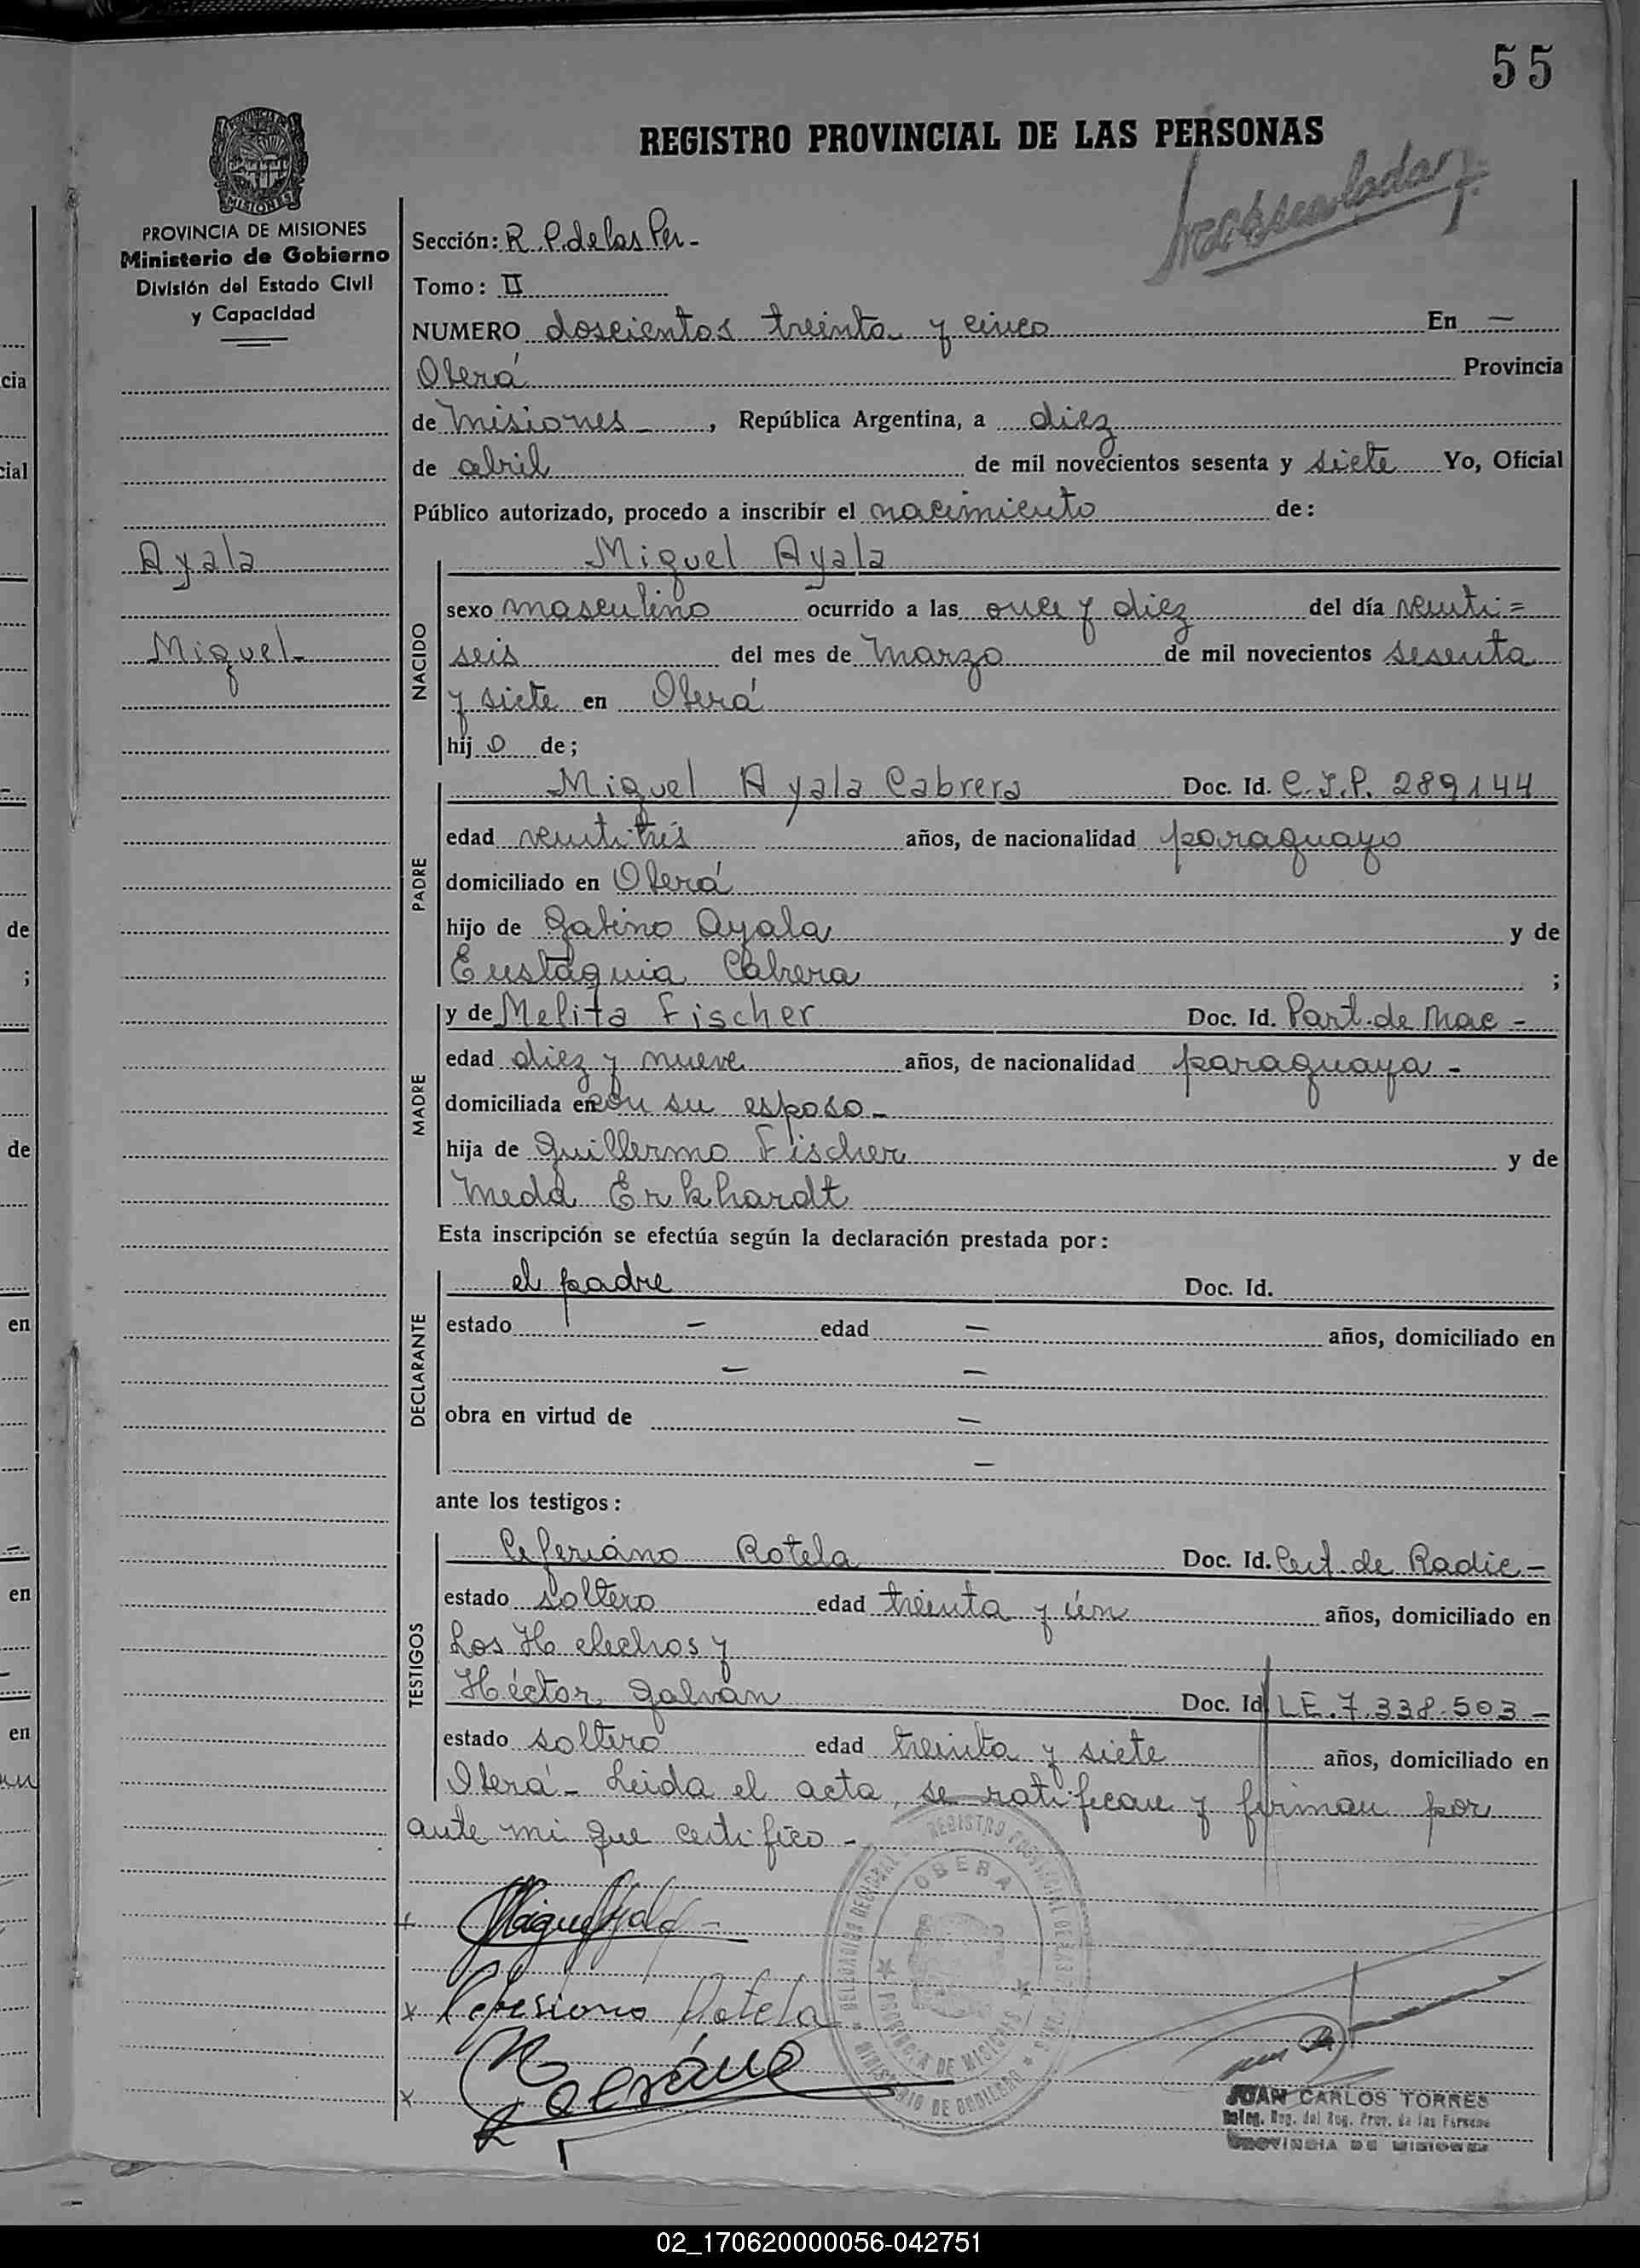 55
REGISTRO PROVINCIAL DE LAS PERSONAS
MISIONES
PROVINCIA DE MISIONES
Ministerio de Gobierno
División del Estado Civil
y Capacidad
Sección: R. P. de las Per-
Tomo: II
NUMERO doscientos treinta y cinco En —
Oberá Provincia
de Misiones, República Argentina, a diez
de abril de mil novecientos sesenta y siete Yo, Oficial
Público autorizado, procedo a inscribir el nacimiento de:
Ayala
Miguel-
NACIDO
Miguel Ayala
sexo masculino ocurrido a las once y diez del día veinti=
seis del mes de Marzo de mil novecientos sesenta
y siete en Oberá
hijo de;
PADRE
Miguel Ayala Cabrera Doc. Id. C.I.P. 289144
edad veintitrés años, de nacionalidad paraguayo
domiciliado en Oberá
hijo de Gabino Ayala y de
Eustaquia Cabrera ;
MADRE
y de Melita Fischer Doc. Id. Part. de Nac -
edad diez y nueve años, de nacionalidad paraguaya -
domiciliada en con su esposo -
hija de Guillermo Fischer y de
Meda Erkhardt
Esta inscripción se efectúa según la declaración prestada por:
DECLARANTE
el padre Doc. Id.
estado — edad — años, domiciliado en
— —
obra en virtud de —
—
ante los testigos:
TESTIGOS
Ceferiano Rotela Doc. Id. Cert. de Radic -
estado soltero edad treinta y un años, domiciliado en
Los Helechos y
Héctor Galván Doc. Id LE. 7.338.503 -
estado soltero edad treinta y siete años, domiciliado en
Oberá - Leida el acta, se ratifican y firman por
ante mi que certifico -
Miguel Ayala -
Rotela
REGISTRO PROVINCIAL DE LAS PERSONAS
OBERA
PROVINCIA DE MISIONES
MINISTERIO DE GOBIERNO
JUAN CARLOS TORRES
Deleg. Reg. del Reg. Prov. de las Persona
PROVINCIA DE MISIONES
cia
cial
de
;
de
en
en
en
02_170620000056-042751